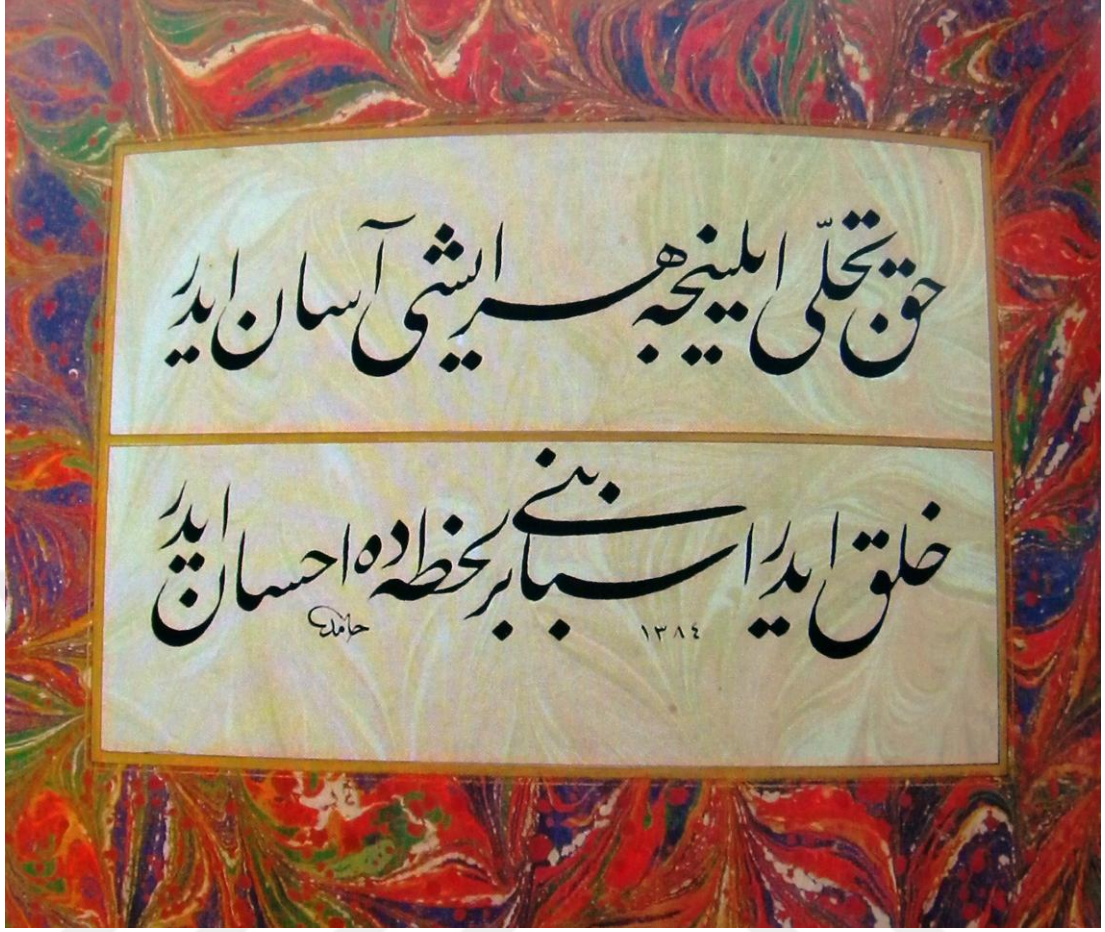 حق تجلّی ایلینجه هر ایشی آسان ایدر
خلق ایدر اسبابنی بر لحظه ده احسان ایدر
١٣٨٤
حامد